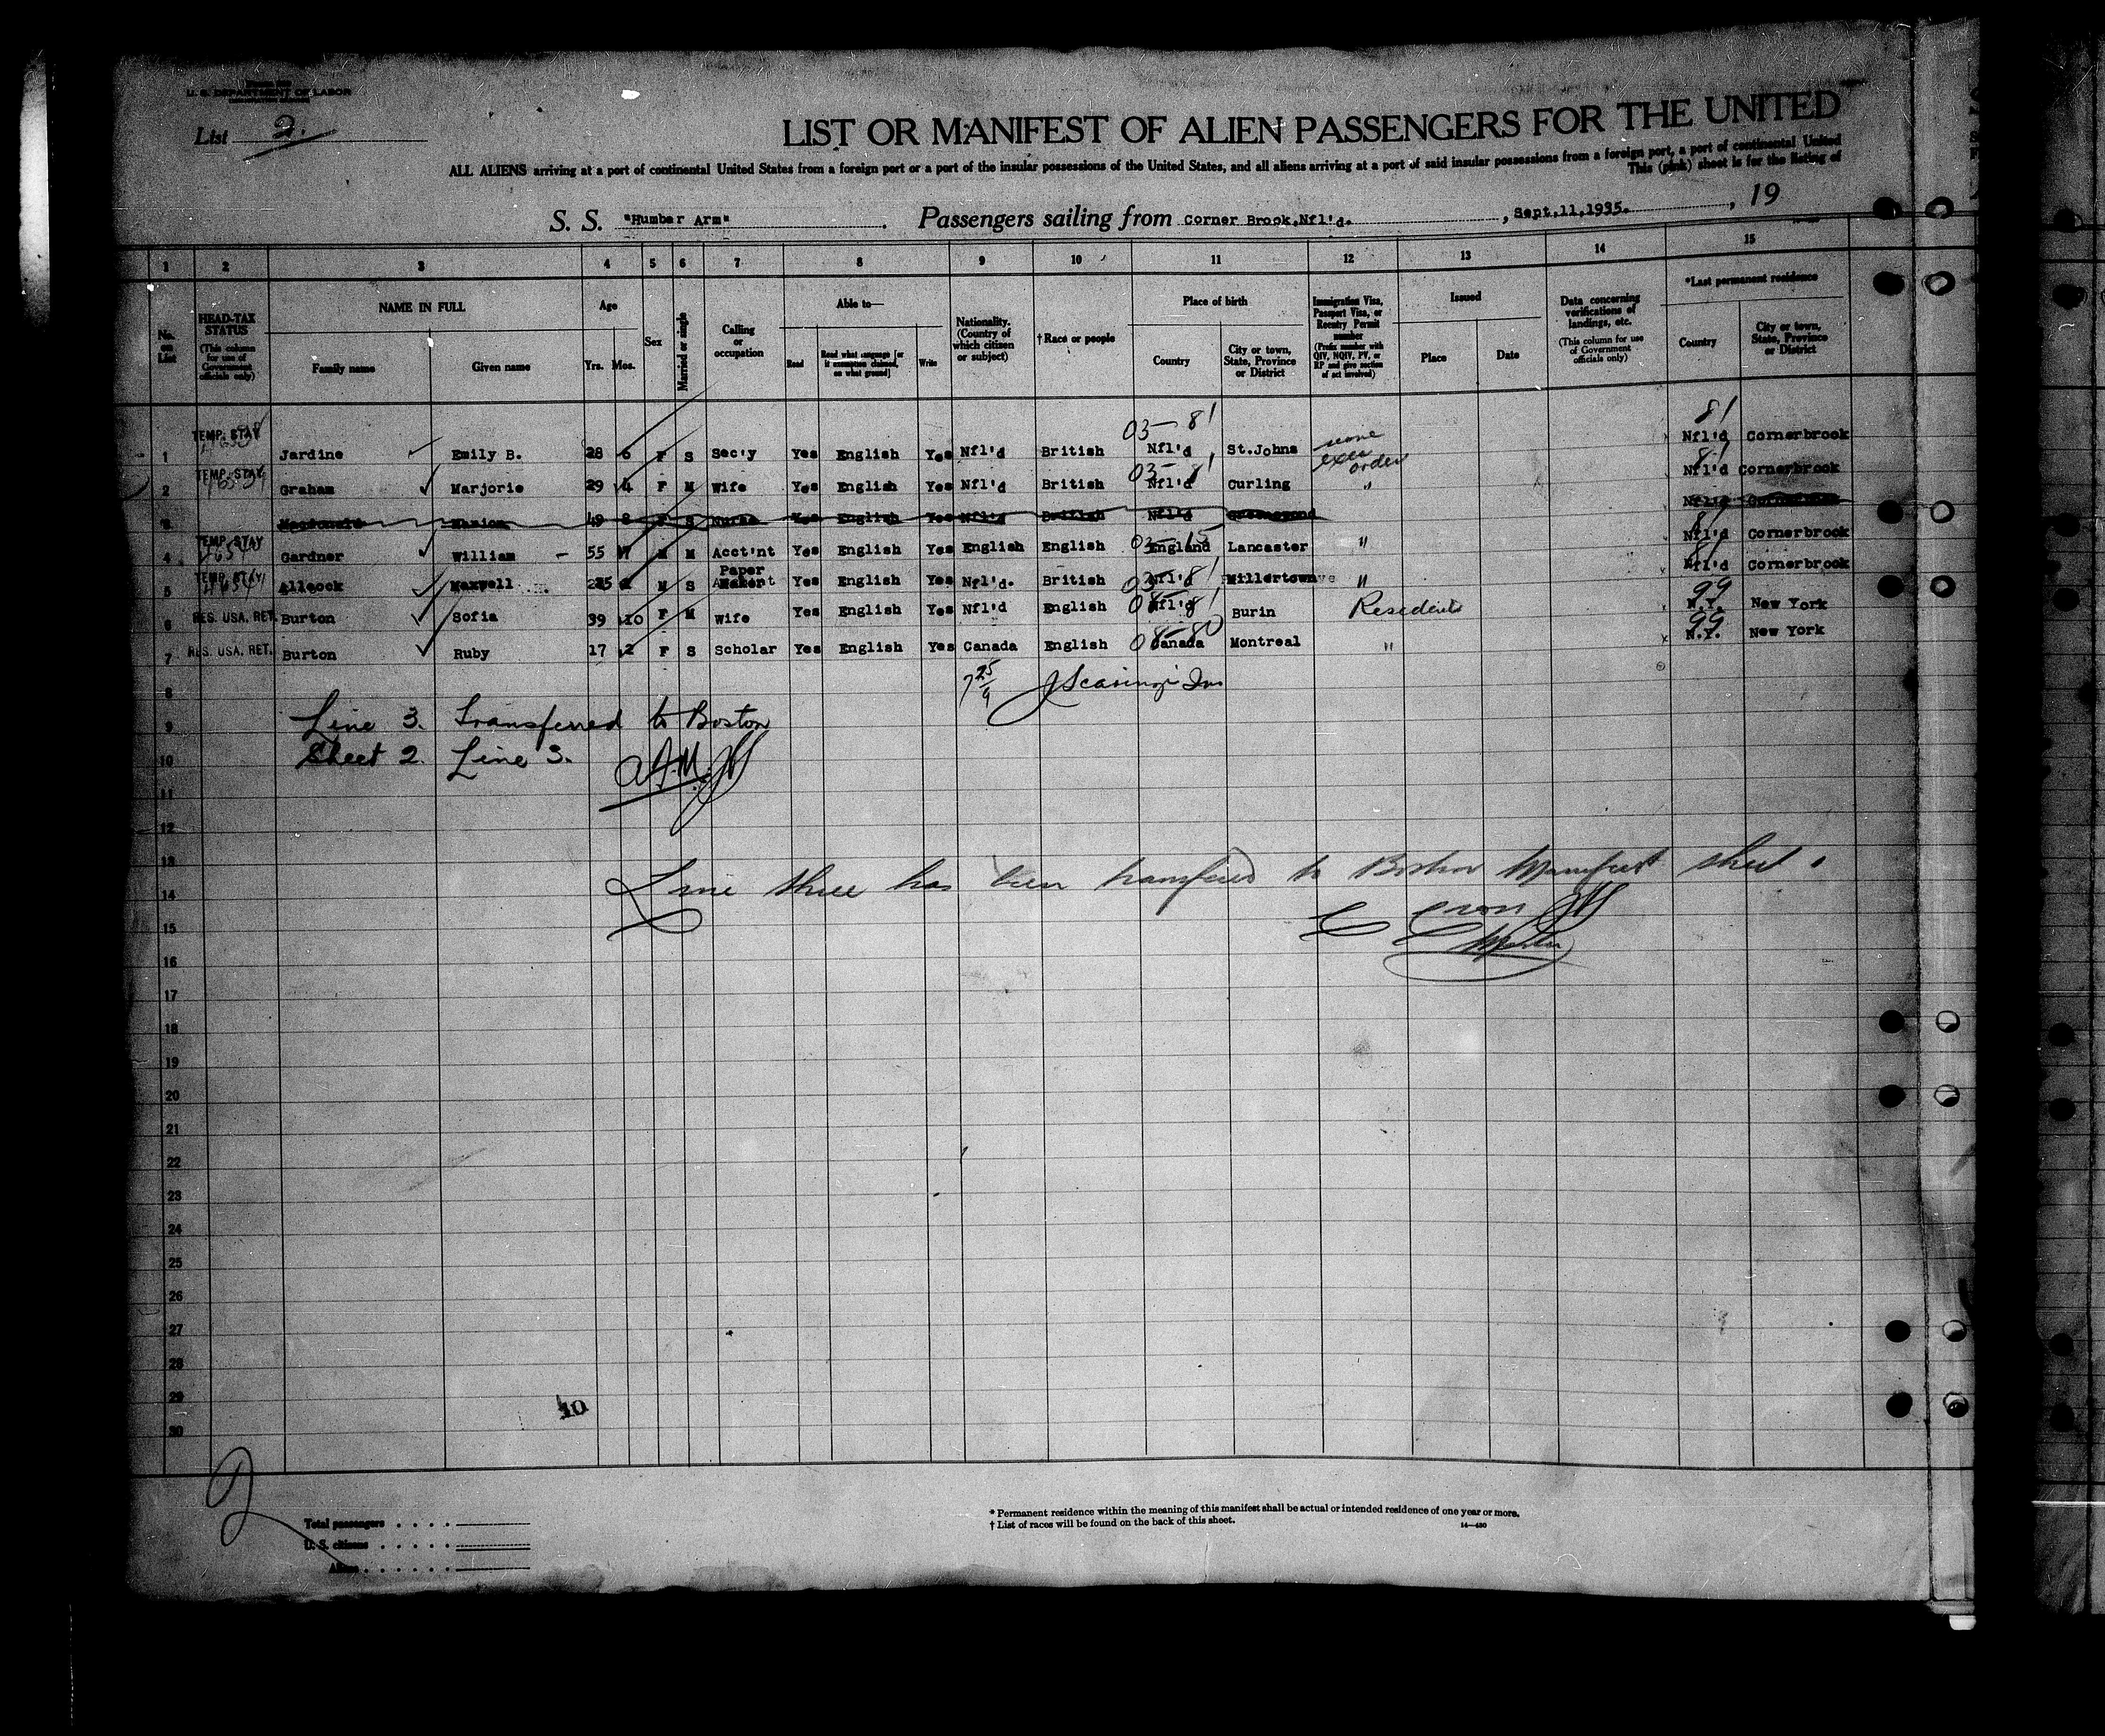 U. S. DEPARTMENT OF LABOR
List 2.
LIST OR MANIFEST OF ALIEN PASSENGERS FOR THE UNITED
ALL ALIENS arriving at a port of continental United States from a foreign port or a part of the insular possessions of the United States, and all aliens arriving at a port of said insular possessions from a foreign port, a port of continental United
This (pink) sheet is for the listing of
S. S. "Humber Arm". Passengers sailing from Corner Brook, Nfl'd. , Sept. 11, 1935. , 19
1 2 3 4 5 6 7 8 9 10 11 12 13 14 15
No. on List
HEAD-TAX STATUS (This column for use of Government officials only)
NAME IN FULL
Family name Given name
Age
Yrs. Mos.
Sex
Married or single
Calling or occupation
Able to—
Read Read what language [or if exemption claimed, on what ground] Write
Nationality. (Country of which citizen or subject)
† Race or people
Place of birth
Country City or town, State, Province or District
Immigration Visa, Passport Visa, or Reentry Permit number (Prefix number with QIV, NQIV, PV, or RP and give section of act involved)
Issued
Place Date
Data concerning verifications of landings, etc. (This column for use of Government officials only)
*Last permanent residence
Country City or town, State, Province or District
1 TEMP. STAY Jardine Emily B. 28 6 F S Sec'y Yes English Yes Nfl'd British 03-81 Nfl'd St. Johns none exec order 81 Nfl'd Cornerbrook
2 TEMP. STAY Graham Marjorie 29 4 F M Wife Yes English Yes Nfl'd British 03-81 Nfl'd Curling " 81 Nfl'd Cornerbrook
3 Marion 49 8 F S Nurse Yes English Yes Nfl'd British Nfl'd Nfl'd
4 TEMP. STAY Gardner William 55 M M Acct'nt Yes English Yes English English 03-15 England Lancaster " 81 Nfl'd Cornerbrook
5 TEMP. STAY Allcock Maxwell M S Paper Yes English Yes Nfl'd. British Nfl'd Millertown " 81 Nfl'd Cornerbrook
6 RES. USA. RET. Burton Sofia 39 10 F M Wife Yes English Yes Nfl'd English Nfl'd Burin Residents 99 N.Y. New York
7 RES. USA. RET. Burton Ruby 17 2 F S Scholar Yes English Yes Canada English 08-80 Canada Montreal " 99 N.Y. New York
8
9 Line 3. Transferred to Boston
10 Sheet 2. Line 3.
11
12
13
14 Line three has been transfered to Boston Manifest sheet
15
Master
16
17
18
19
20
21
22
23
24
25
26
27
28
29
10
30
Total passengers
U. S. citizens
Aliens
* Permanent residence within the meaning of this manifest shall be actual or intended residence of one year or more.
† List of races will be found on the back of this sheet.
14—430